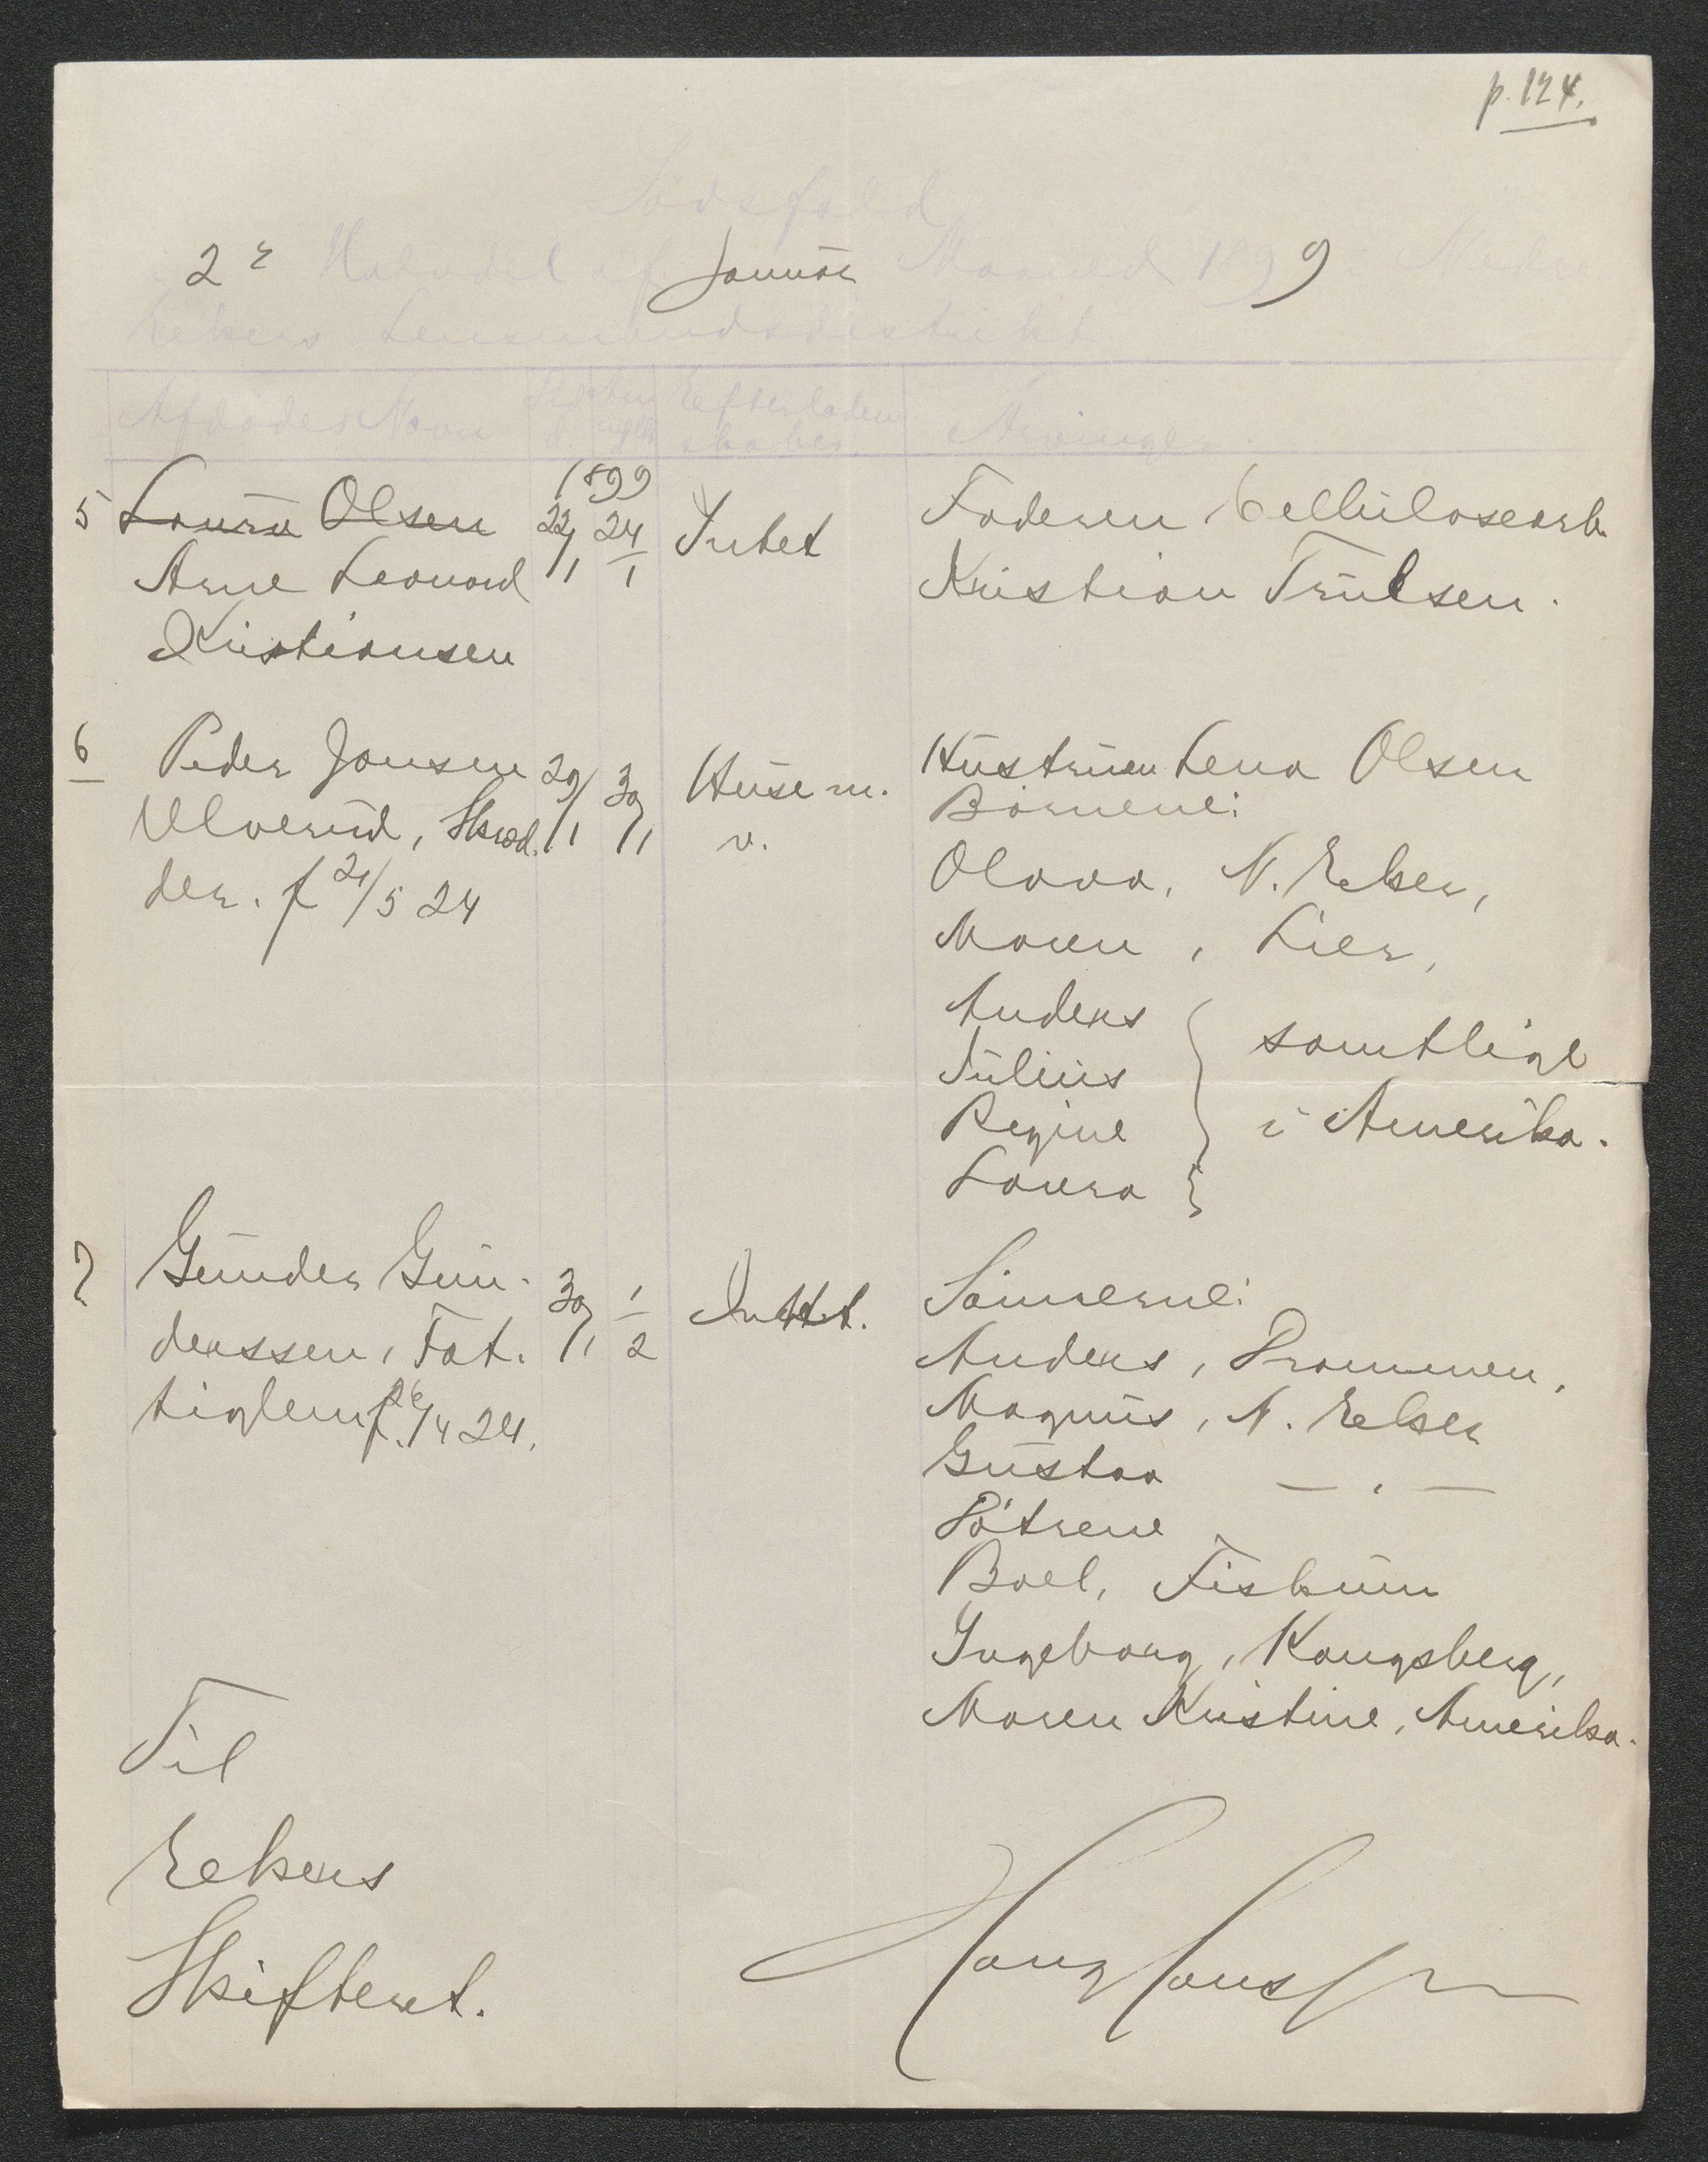 p. 124.
Dødsfald
2 r Halvdel af Januar Maaned 1899 i Nedre
Ekers Lensmandsdistrikt.
Afdødes Navn
Efterladen
skaber.
Arvinger.
1899
5 Laura Olsen 22/1 24/1 Intet Faderen Cellulosearb.
Arne Leonard Kristian Trulsen.
Kristiansen
6 Peder Jonsen 29/1 30/1 Huse m. Hustruen Lena Olsen
Børnene:
Ulverud, Skræd. v.
der. f 21/5 24 Olava, N. Eker,
Maren, Lier,
Anders
Julius } samtlige
Regine i Amerika.
Laura }
7 Gunder Gun- 30/1 1/2 Intet. Sønnerne:
derssen, Fat. Anders, Drammen,
tiglem f. 26/4 24. Magnus, N. Eker
Gustav — " —
Døtrene
Boel, Fiskum
Ingeborg, Kongsberg,
Maren Kristine, Amerika.
Til
Ekers
Skifteret.